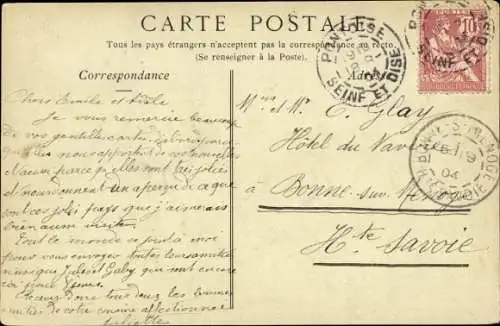 CARTE POSTALE
Tous les pays étrangers n'acceptent pas la correspondance au recto.
(Se renseigner à la Poste.)
Correspondance
Adresse
PONTOISE
SEINE ET OISE
10
SEINE ET OISE
04
Chers Emile et
Je vous remercie beaucoup
de vos gentilles cartes d'abord parce
qu'elles nous apportent de vos nouvelles
et aussi parce qu'elles sont très jolies
et nous donnent un aperçu de ce que
sont ces jolis pays que j'aimerais
bien aussi visiter.
Tout le monde se joint à moi
pour vous envoyer toutes leurs amitiés
ainsi que Jules et Gaby qui sont encore
ici pour
donc tous deux les bonnes
amitiés de votre cousine affectionnée
Juliette
Mme et Mr C. Glay
Hôtel du
à Bonne sur Menoge
Hte Savoie